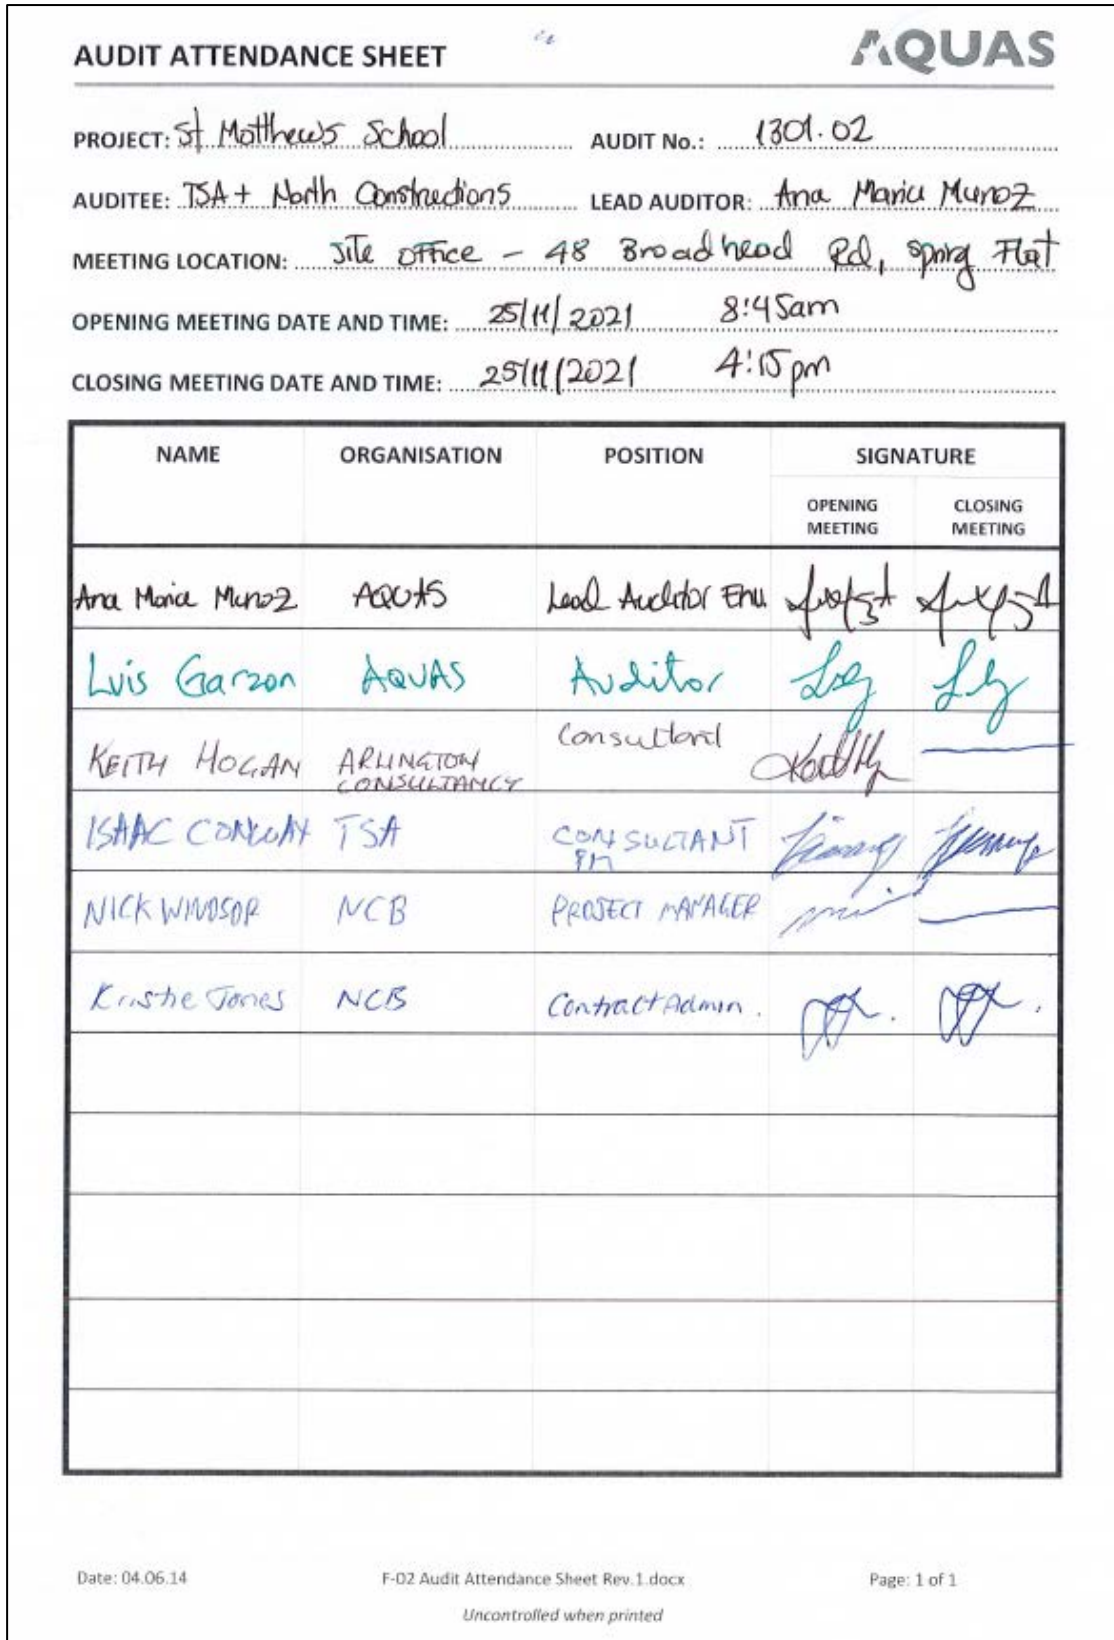 AUDIT ATTENDANCE SHEET
AQUAS
PROJECT: St Matthews School AUDIT No.: 1301.02
AUDITEE: TSA + North Constructions LEAD AUDITOR: Ana Maria Munoz
MEETING LOCATION: Site office - 48 Broadhead Rd, spring Flat
OPENING MEETING DATE AND TIME: 25/11/2021 8:45am
CLOSING MEETING DATE AND TIME: 25/11/2021 4:15pm
NAME ORGANISATION POSITION SIGNATURE
OPENING MEETING CLOSING MEETING
Ana Maria Munoz AQUAS Lead Auditor Env.
Luis Garzon AQUAS Auditor
KEITH HOGAN ARLINGTON CONSULTANCY Consultant
ISAAC CONWAY TSA CONSULTANT PM
NICK WINDSOR NCB PROJECT MANAGER
Kristie Jones NCB Contract Admin.
Date: 04.06.14 F-02 Audit Attendance Sheet Rev.1.docx Page: 1 of 1
Uncontrolled when printed